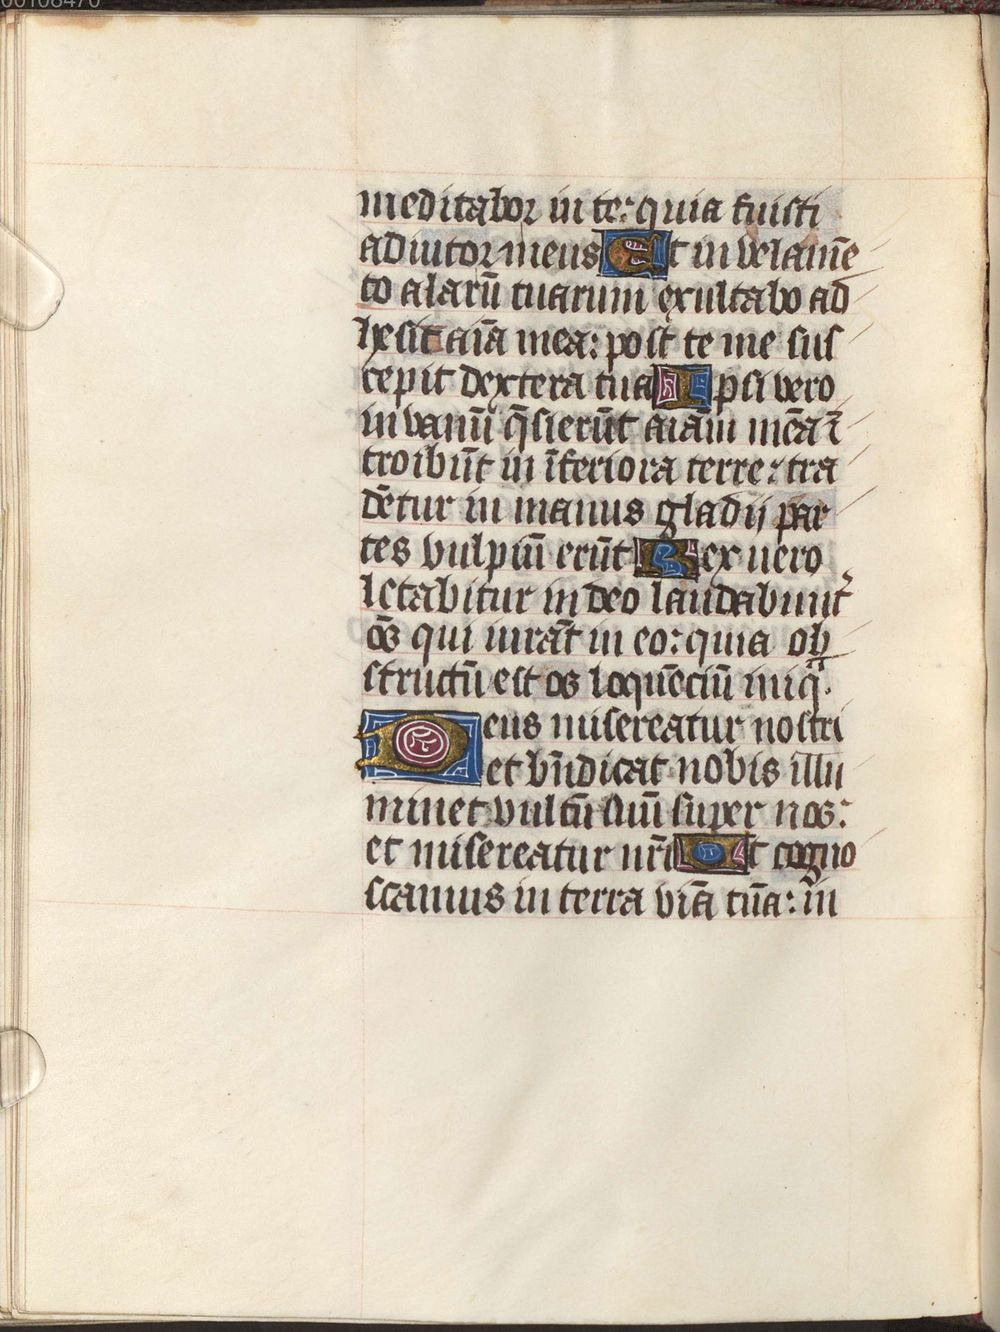 00108470
meditabor in te: quia fuisti
adiutor meus Et in velamē
to alarū tuarum exultabo ad
hesit aīa mea: post te me sus
cepit dextera tua Ipsi vero
in vanū q̄sierūt aīam mēa ī
troibūt in īferiora terre: tra
dētur in manus gladij par
tes vulpiū erūt Rex uero
letabitur in deo laudabunt᷑
oēs qui iurāt in eo: quia ob
structū est os loquēciū iniq̄.
Deus misereatur nostri
et bn̄dicat nobis illu
minet vultū suū super nos:
et misereatur nr̄i Ut cogno
scamus in terra viā tuā: in